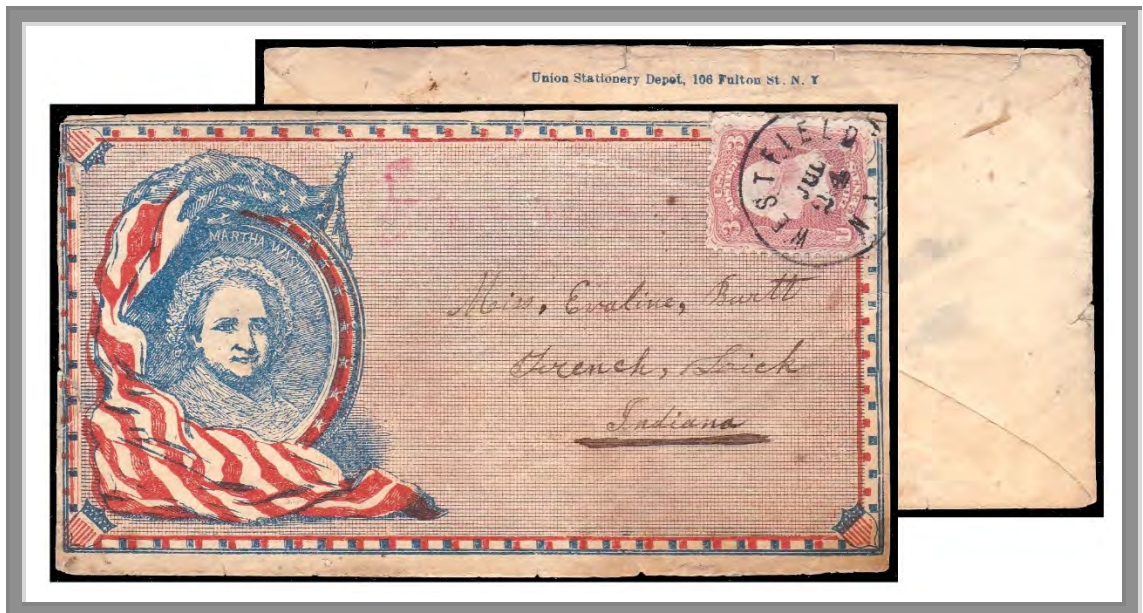 Union Stationery Depot, 106 Fulton St. N. Y
MARTHA WASHINGTON
WESTFIELD N.Y.
JUL
24
3 3
Miss, Evaline, Burtt
French, Lick
Indiana